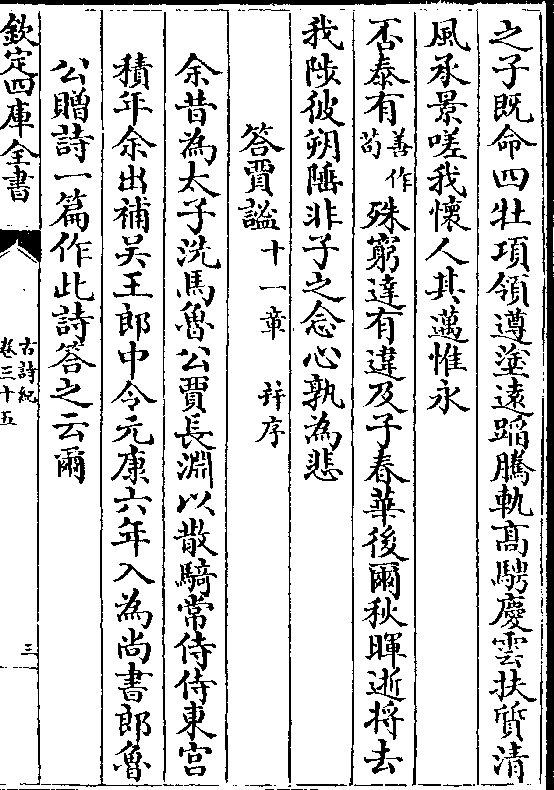 之子既命四牡項領遵塗遠蹈騰軌髙騁慶雲扶質清
風承景嗟我懷人其邁惟永
否泰有善作苟殊窮達有違及子春華後爾秋暉逝將去
我陟彼朔陲非子之念心孰為悲
答賈謐十一章 幷序
余昔為太子洗馬魯公賈長淵以散騎常侍侍東宫
積年余出補吴王郎中令元康六年入為尚書郎魯
公贈詩一篇作此詩答之云爾
欽定四庫全書
古詩紀
卷三十五
三